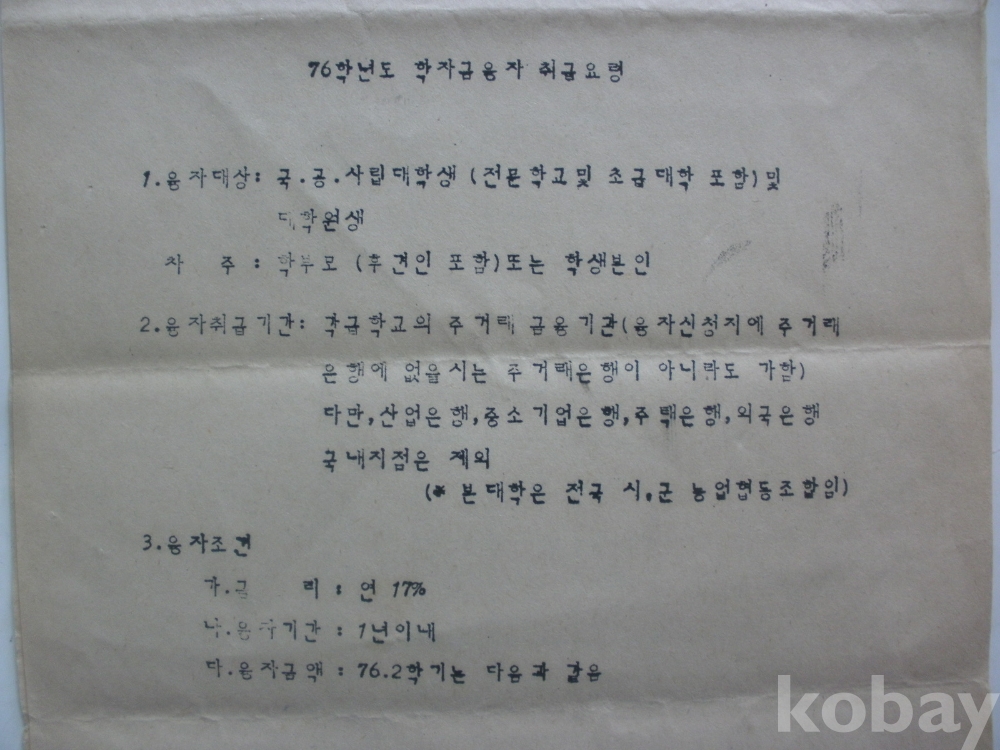 76학년도 학자금융자 취급요령
1.융자대상: 국.공.사립대학생 (전문학교및 초급대학 포함)및
대학원생
차 주 : 학부모 (후견인 포함)또는 학생본인
2.융자취급기간: 각급학교의 주거래 금융기관(융자신청지에 주거래
은행에 없을시는 주거래은행이 아니라도 가함)
다만,산업은행,중소기업은행,주택은행,외국은행
국내지점은 제외
(* 본대학은 전국 시.군 농업협동조합임)
3.융자조건
가.금 리 : 연 17%
나.융자기간 : 1년이내
다.융자금액 : 76.2학기는 다음과 같음
kobay